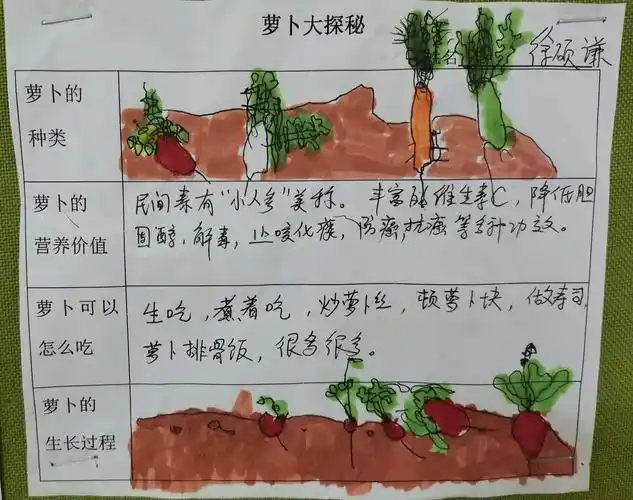 萝卜大探秘
姓名 徐硕谦
萝卜的
种类
萝卜的
营养价值
民间素有“小人参”美称。丰富的维生素C，降低胆
固醇，解毒，止咳化痰，防癌，抗癌等多种功效。
萝卜可以
怎么吃
生吃，煮着吃，炒萝卜丝，顿萝卜块，做寿司，
萝卜排骨饭，很多很多。
萝卜的
生长过程